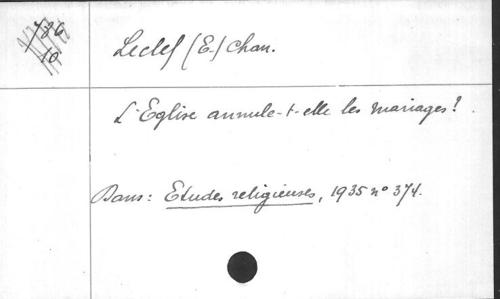 786
10
Leclef (E.) Chan.
L'Eglise annule-t-elle les mariages?
Dans: Etudes religieuses, 1935 n° 374.